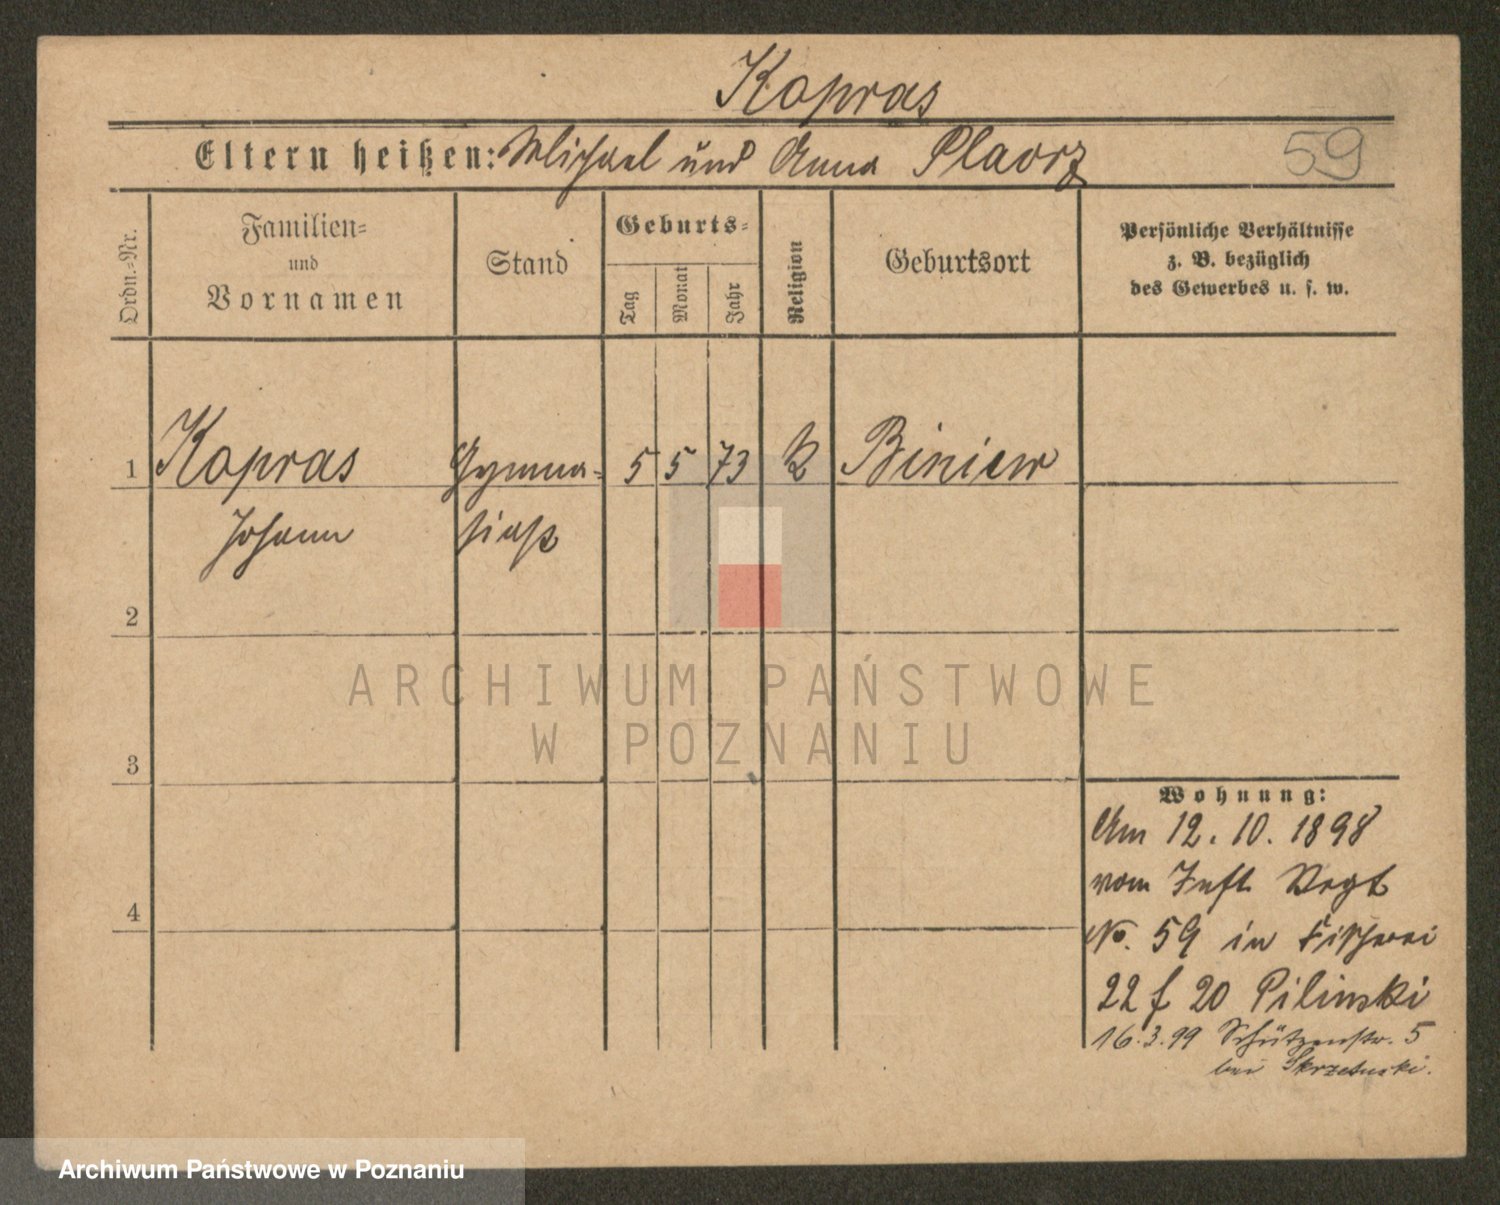 Kopras
Eltern heißen: Michael und Anna Plavrz
59
Ordn.-Nr.
Familien-
und
Vornamen
Stand
Geburts-
Tag
Monat
Jahr
Religion
Geburtsort
Persönliche Verhältnisse
z. B. bezüglich
des Gewerbes u. s. w.
1 Kopras Gymna- 5 5 73 k Biniew
Johann siast
2
3
4
Wohnung:
Am 12. 10. 1898
vom Inft
No. 59 in Fischerei
22 f 20 Pilinski
16.3.99 Schützenstr. 5
bei Skrzetuski.
ARCHIWUM PAŃSTWOWE
W POZNANIU
Archiwum Państwowe w Poznaniu